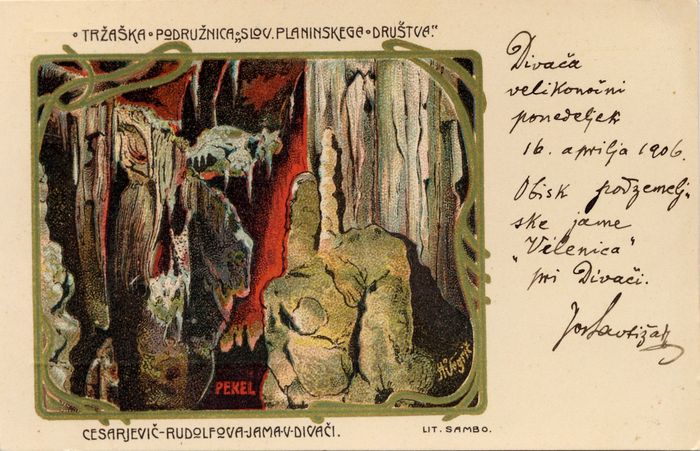 • TRŽAŠKA • PODRUŽNICA „SLOV. PLANINSKEGA • DRUŠTVA.“
Divača
velikonočni
ponedeljek
16. aprilja 1906.
Obisk podzemelj„
ske jame
„Vilenica“
pri Divači.
PEKEL
CESARJEVIČ-RUDOLFOVA-JAMA-V-DIVAČI.
LIT. SAMBO.